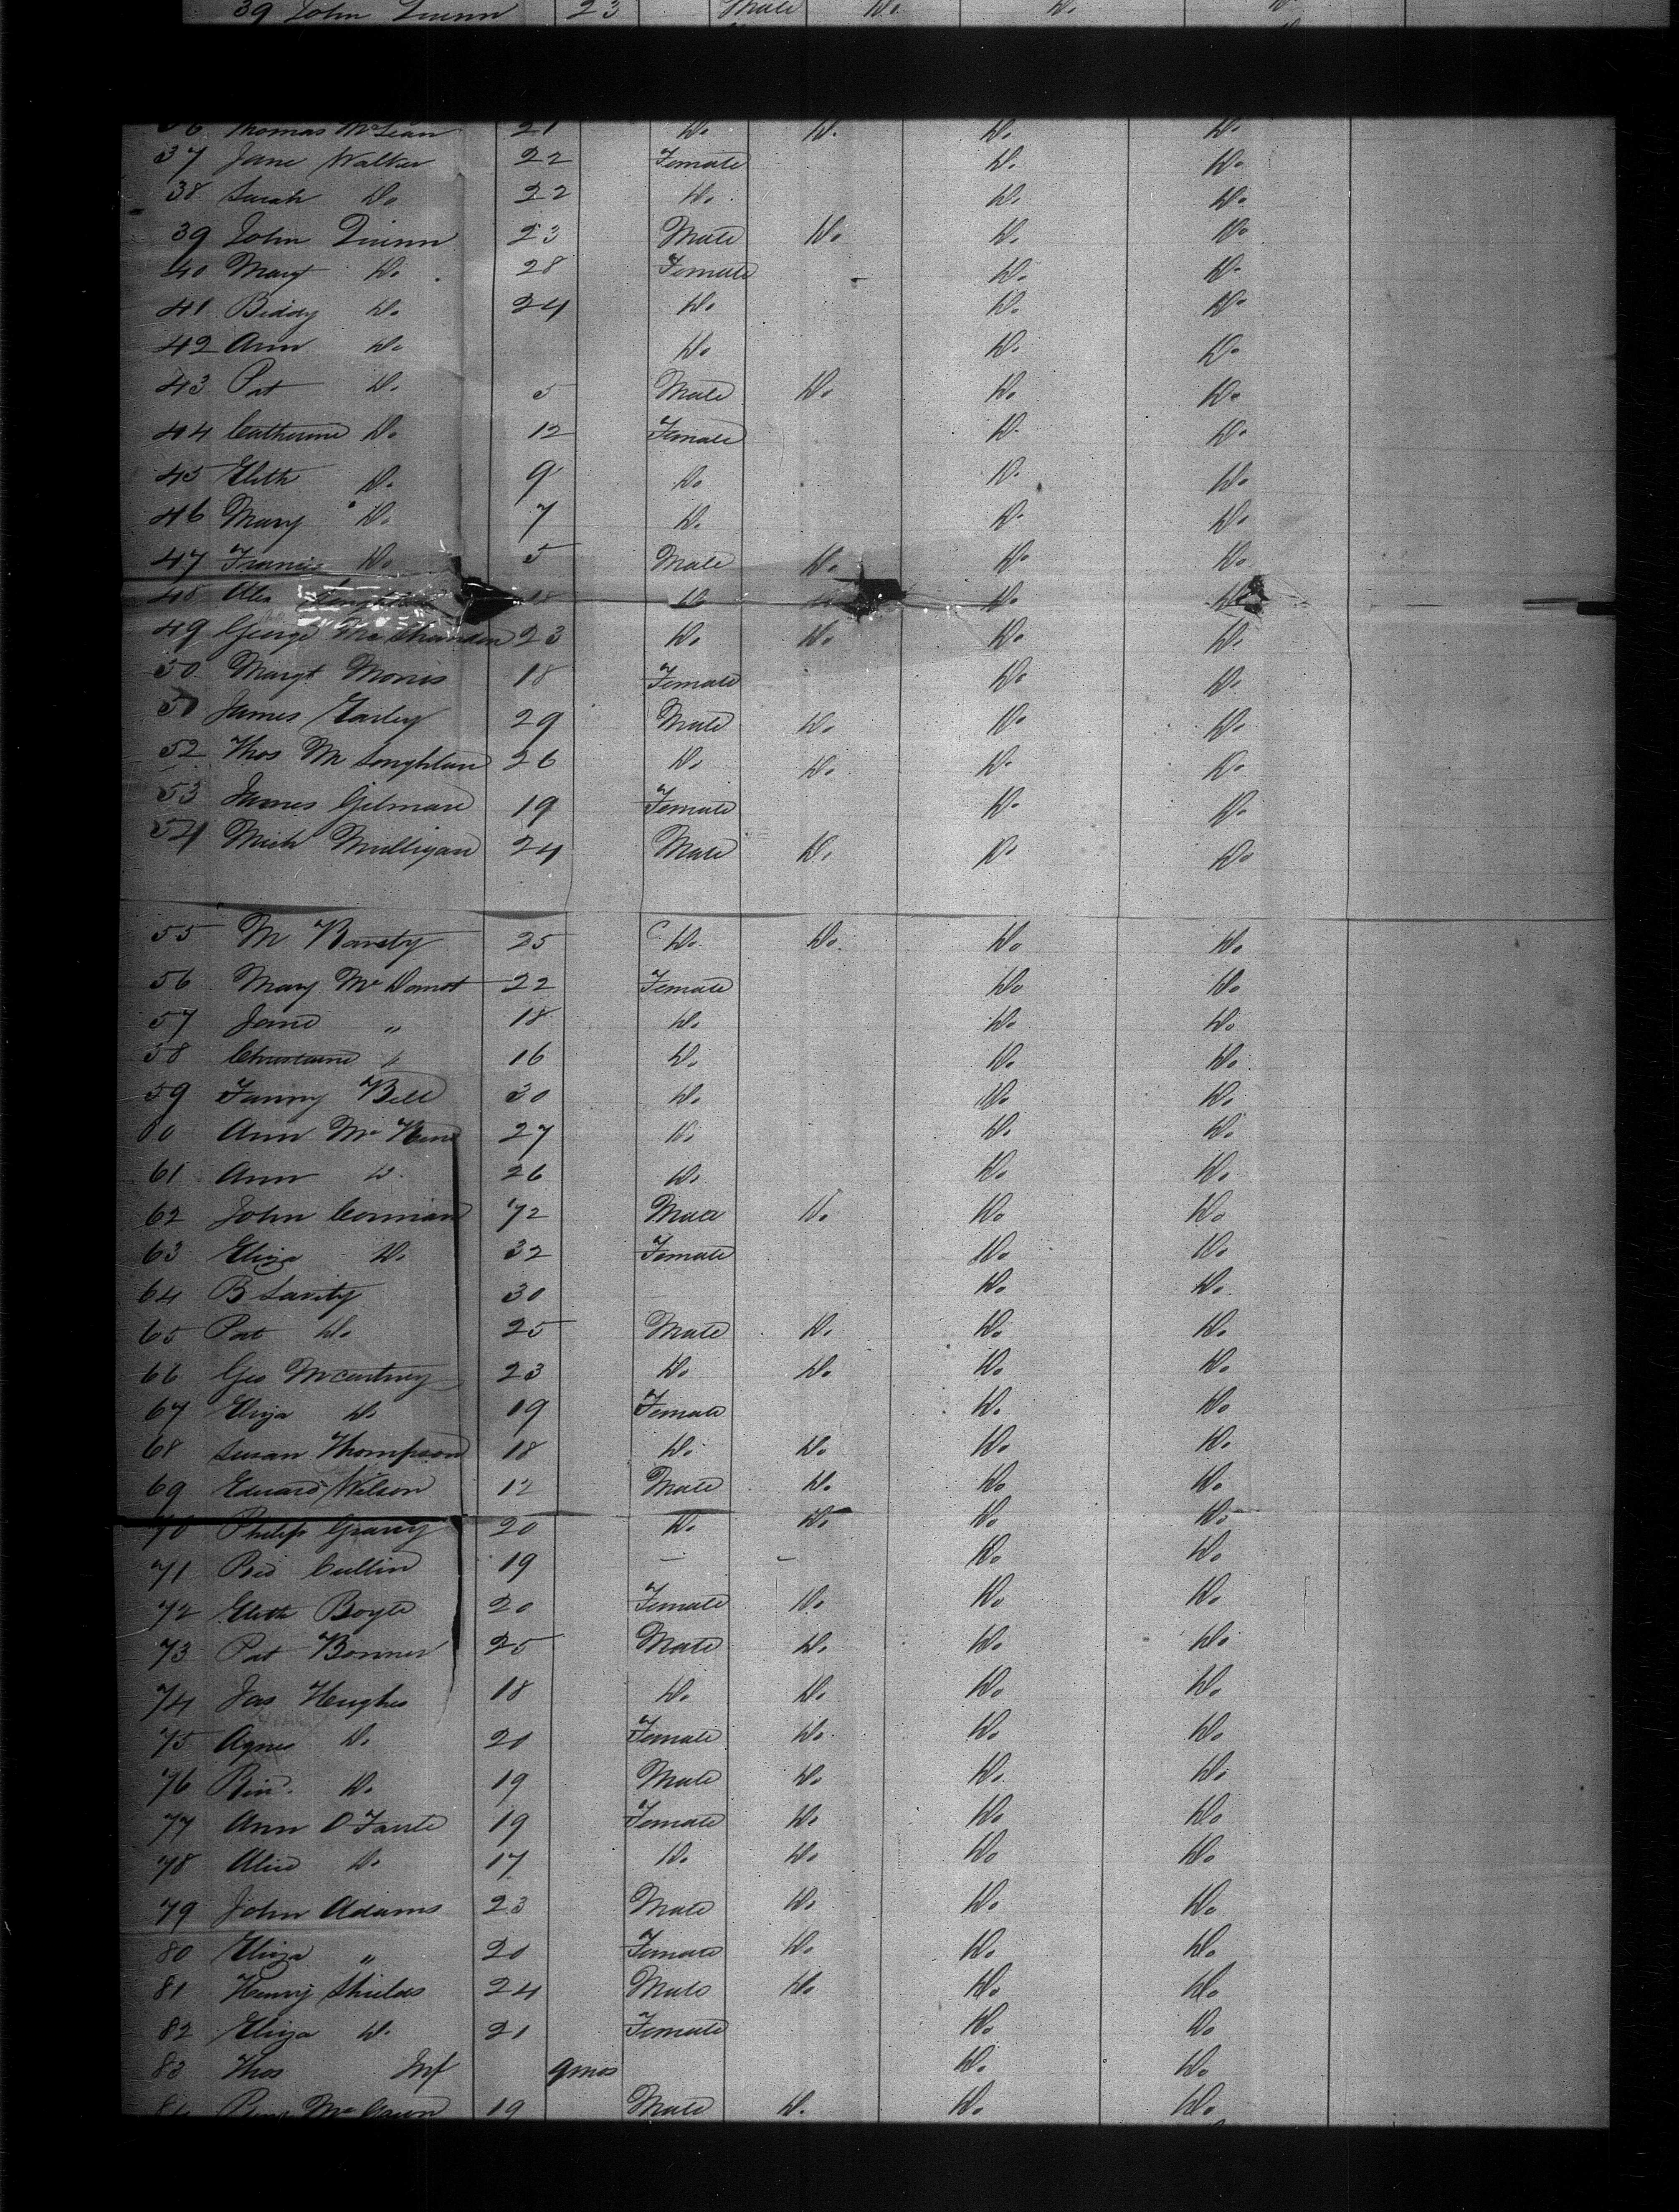 39 John Quinn 23 Male Do. Do. Do
36 Thomas McLean 21 Do. Do. Do. Do.
37 Jane Walker 22 Female Do. Do.
38 Sarah Do 22 Do. Do. Do.
39 John Quinn 23 Male Do. Do. Do
40 Margt Do. 28 Female Do. Do.
41 Biddy Do. 24 Do. Do. Do.
42 Ann Do Do Do. Do.
43 Pat Do. 5 Male Do. Do. Do.
44 Catherine Do. 12 Female Do. Do.
45 Elith Do. 9 Do. Do. Do.
46 Mary Do. 7 Do. Do. Do.
47 Francis Do 5 Male Do. Do. Do.
48 Alex 18 Do Do Do
49 George 23 Do. Do. Do. Do.
50 Margt Morris 18 Female Do. Do.
51 James Farley 29 Male Do. Do. Do.
52 Thos McLoughlan 26 Do. Do. Do. Do.
53 James Gilmare 19 Female Do. Do.
54 Mich Mulligan 24 Male Do. Do. Do
55 M 25 Do. Do. Do Do
56 Mary McDomot 22 Female Do Do.
57 Jane " 18 Do. Do Do
58 " 16 Do. Do. Do.
59 Fanny Bell 30 Do. Do. Do.
60 Ann 27 Do. Do. Do.
61 Ann Do. 26 Do. Do. Do.
62 John 72 Male Do. Do Do
63 Eliza Do. 32 Female Do Do
64 B Lavity 30 Do. Do.
65 Pat Do. 25 Male Do. Do. Do.
66 Geo Mcartney 23 Do. Do. Do. Do.
67 Eliza Do 19 Female Do. Do
68 Susan Thompson 18 Do. Do. Do. Do.
69 Edward Wilson 12 Male Do. Do Do.
70 Philip 20 Do. Do. Do Do
71 Cullin 19 — - Do Do
72 Elith Boyle 20 Female Do. Do Do.
73 Pat Bonner 25 Male Do. Do Do
74 Jas Hughes 18 Do. Do. Do Do.
75 Agnes Do. 20 Female Do. Do. Do.
76 Do. 19 Male Do. Do. Do.
77 Ann 19 Female Do. Do Do
78 Alice Do. 17 Do. Do. Do Do.
79 John Adams 23 Male Do. Do. Do.
80 Eliza " 20 Female Do. Do. Do.
81 Henry Shields 24 Male Do. Do. Do.
82 Eliza Do. 21 Female Do. Do
83 Thos Inf 9mos Do. Do.
84 19 Male Do. Do. Do.